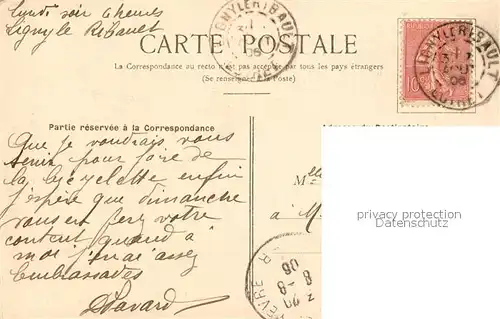 Lundi soir 6 heures
Ligny le Ribault
CARTE POSTALE
La Correspondance au recto n'est pas acceptée par tous les pays étrangers
(Se renseigner à la Poste)
LIGNY LE RIBAULT
LOIRET
10
Partie réservée à la Correspondance
Que je voudrais vous
tenir pour faire de
la bicyclette enfin
j'espère que dimanche
vous en ferez votre
content quand à
moi j'en ai assez
Embrassades
Mlle
à M
privacy protection
Datenschutz